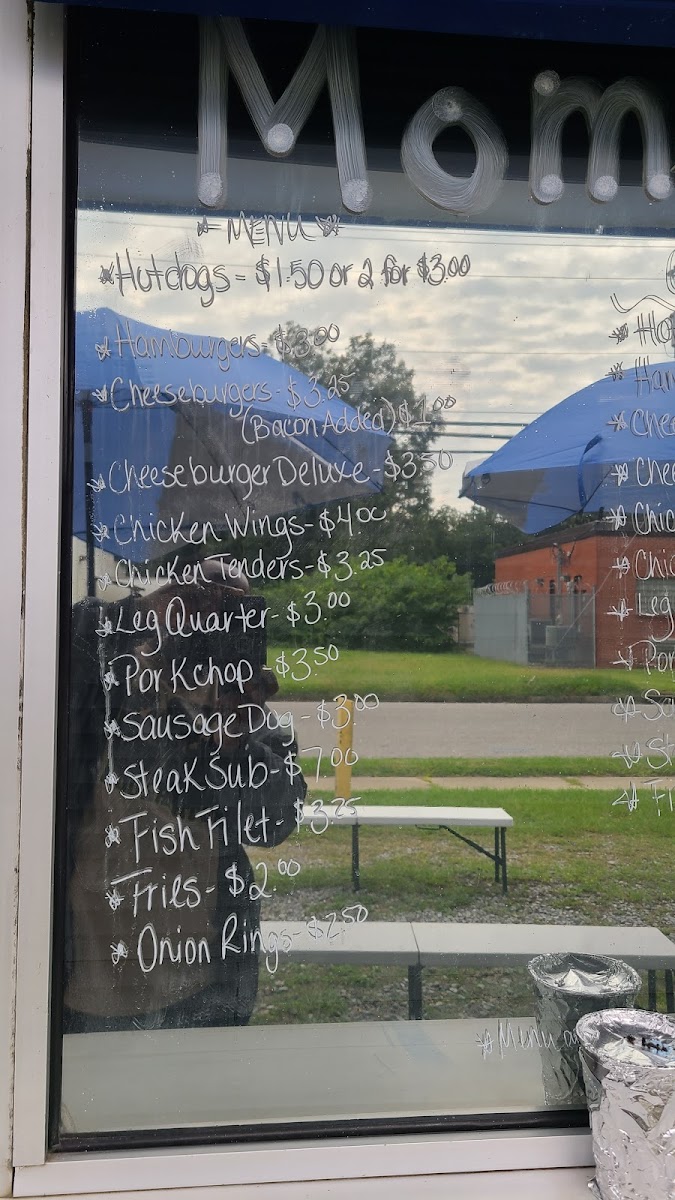 Mom
MENU
Hotdogs - $1.50 or 2 for $3.00
Hamburgers - $3.00
Cheeseburgers - $3.25
(Bacon Added) $1.00
Cheeseburger Deluxe - $3.50
Chicken Wings - $4.00
Chicken Tenders - $3.25
Leg Quarter - $3.00
Porkchop - $3.50
Sausage Dog - $3.00
Steak Sub - $7.00
Fish Filet - $3.25
Fries - $2.00
Onion Rings - $2.50
Hot
Ham
Chee
Chee
Chic
Chic
Leg
Por
Sa
St
Fi
Menu